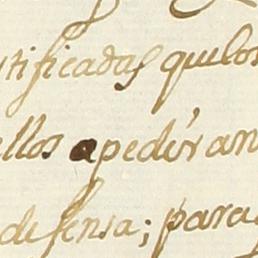 tificadas quilos
ellos apedir an
defensa; para